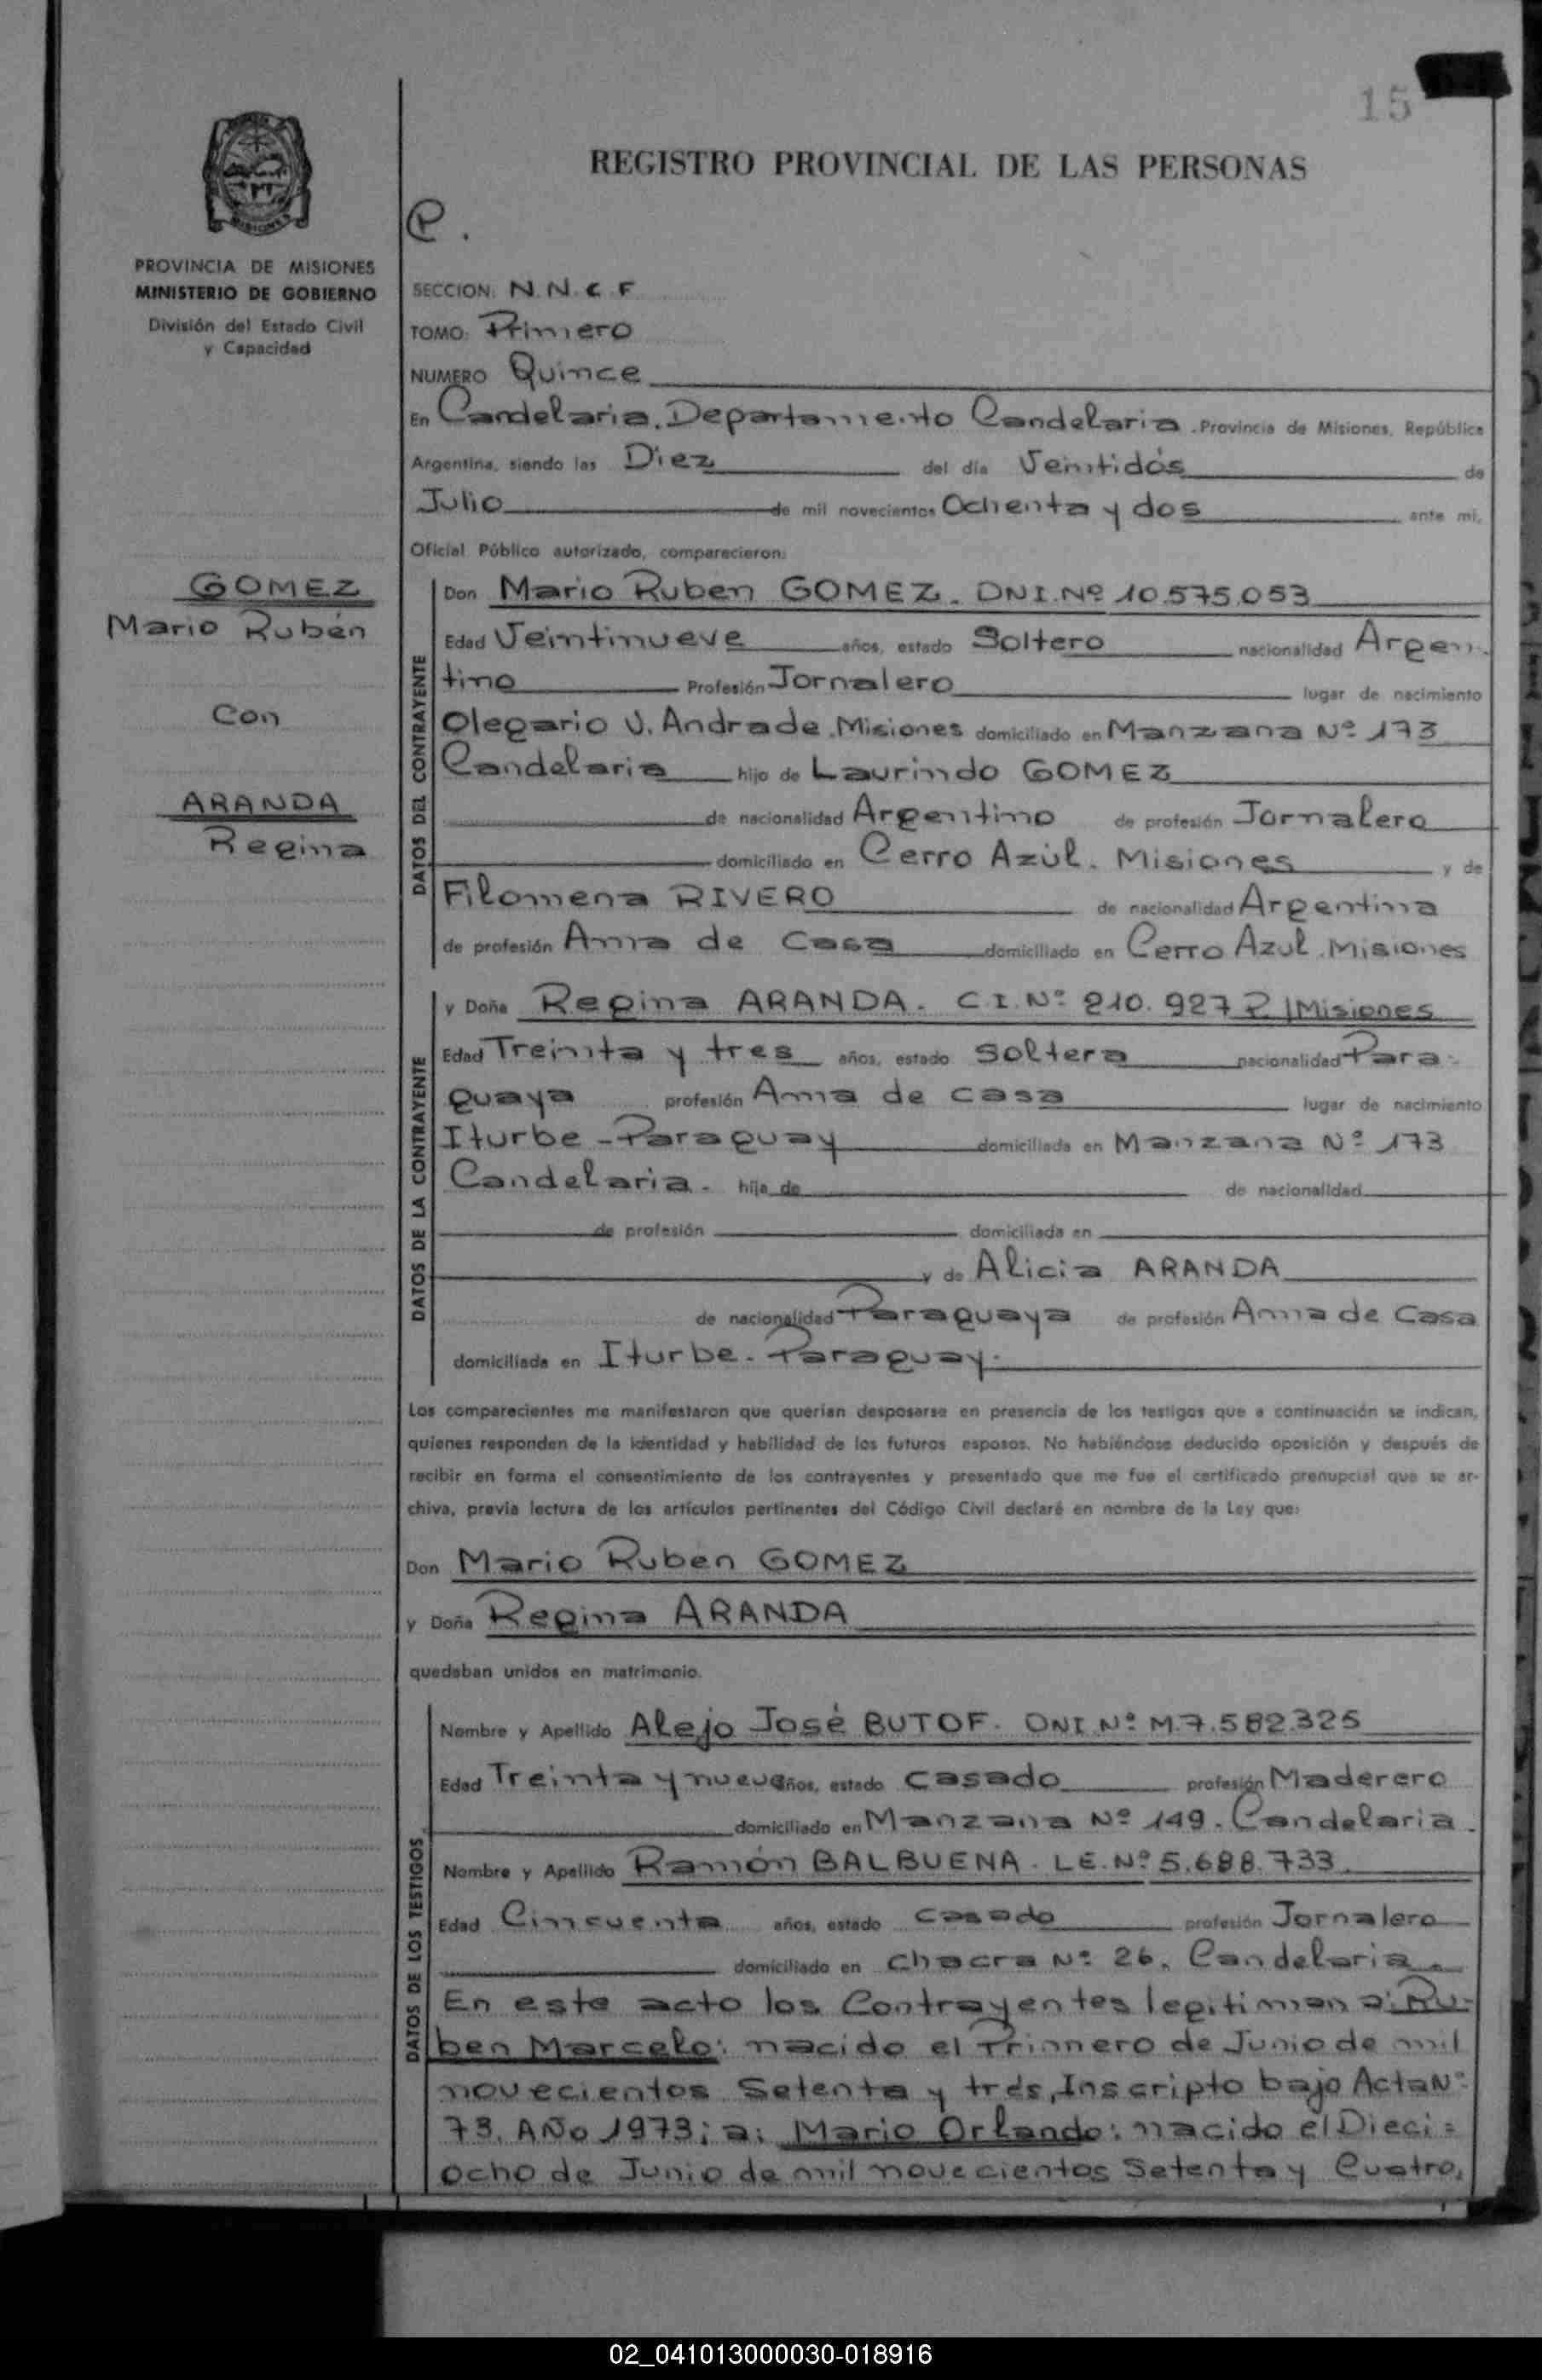 15
REGISTRO PROVINCIAL DE LAS PERSONAS
MISIONES
PROVINCIA DE MISIONES
MINISTERIO DE GOBIERNO
División del Estado Civil
y Capacidad
P.
SECCION: N.N.C.F
TOMO: Primero
NUMERO Quince
En Candelaria. Departamento Candelaria. Provincia de Misiones, República
Argentina, siendo las Diez del día Veintidós de
Julio de mil novecientos Ochenta y dos ante mí,
Oficial Público autorizado, comparecieron:
GOMEZ
Mario Rubén
Con
ARANDA
Regina
DATOS DEL CONTRAYENTE
Don Mario Ruben GOMEZ. DNI.Nº 10.575.053
Edad Veintinueve años, estado Soltero nacionalidad Argen-
tino Profesión Jornalero lugar de nacimiento
Olegario V. Andrade. Misiones domiciliado en Manzana Nº 173
Candelaria hijo de Laurindo GOMEZ
de nacionalidad Argentino de profesión Jornalero
domiciliado en Cerro Azúl. Misiones y de
Filomena RIVERO de nacionalidad Argentina
de profesión Ama de Casa domiciliado en Cerro Azul. Misiones
DATOS DE LA CONTRAYENTE
y Doña Regina ARANDA. C.I.Nº 210.927 P/Misiones
Edad Treinta y tres años, estado Soltera nacionalidad Para-
guaya profesión Ama de casa lugar de nacimiento
Iturbe - Paraguay domiciliada en Manzana Nº 173
Candelaria. hija de de nacionalidad
de profesión domiciliada en
y de Alicia ARANDA
de nacionalidad Paraguaya de profesión Ama de Casa
domiciliada en Iturbe. Paraguay.
Los comparecientes me manifestaron que querían desposarse en presencia de los testigos que a continuación se indican,
quienes responden de la identidad y habilidad de los futuros esposos. No habiéndose deducido oposición y después de
recibir en forma el consentimiento de los contrayentes y presentado que me fue el certificado prenupcial que se ar-
chiva, previa lectura de los artículos pertinentes del Código Civil declaré en nombre de la Ley que:
Don Mario Ruben GOMEZ
y Doña Regina ARANDA
quedaban unidos en matrimonio.
DATOS DE LOS TESTIGOS
Nombre y Apellido Alejo José BUTOF. DNI.Nº M.7.582.325
Edad Treinta y nueve años, estado Casado profesión Maderero
domiciliado en Manzana Nº 149. Candelaria.
Nombre y Apellido Ramón BALBUENA. L.E.Nº 5.688.733
Edad Cincuenta años, estado casado profesión Jornalero
domiciliado en Chacra Nº 26. Candelaria.
En este acto los Contrayentes legitiman a: Ru-
ben Marcelo: nacido el Primero de Junio de mil
novecientos Setenta y tres, Inscripto bajo Acta Nº
73. Año 1973; a: Mario Orlando: nacido el Dieci=
ocho de Junio de mil novecientos Setenta y Cuatro,
02_041013000030-018916